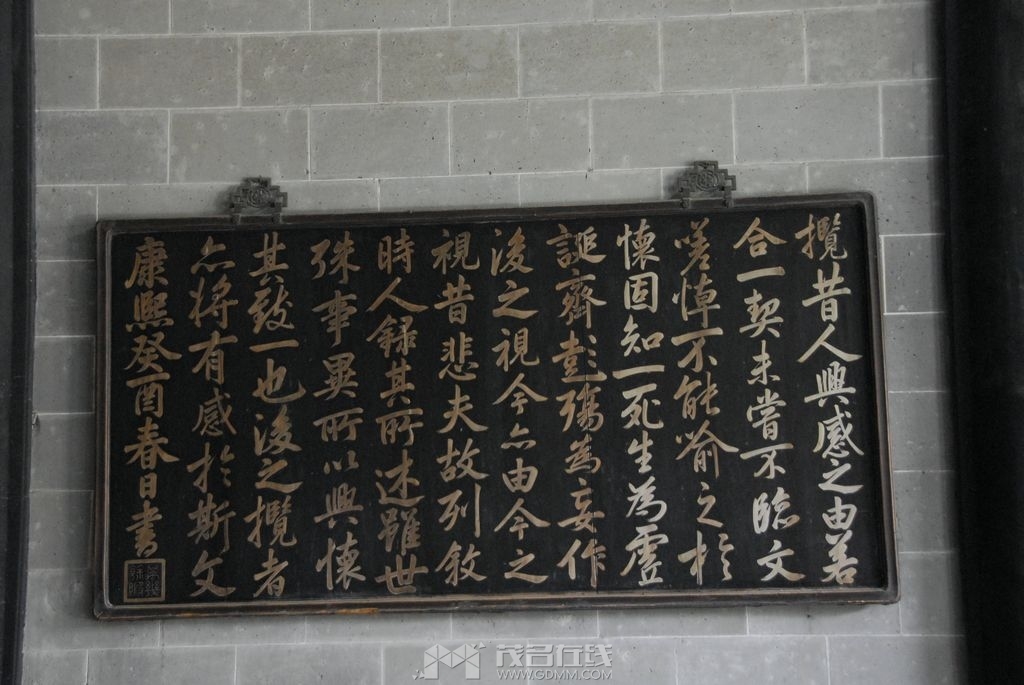 攬昔人興感之由若
合一契未嘗不臨文
嗟悼不能喻之於
懷固知一死生為虛
誕齊彭殤為妄作
後之視今亦由今之
視昔悲夫故列敘
時人錄其所述雖世
殊事異所以興懷
其致一也後之攬者
亦將有感於斯文
康熙癸酉春日書
茂名在线
WWW.GDMM.COM